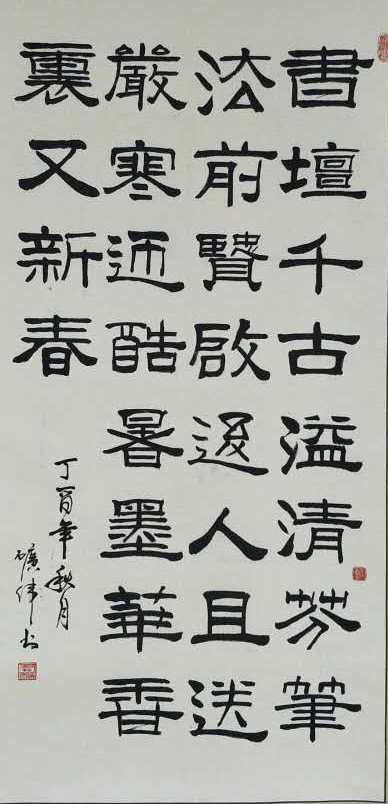 書壇千古溢清芬筆
法前賢啟後人且送
嚴寒迎酷暑墨華香
裏又新春
丁酉年秋月
礦伟书